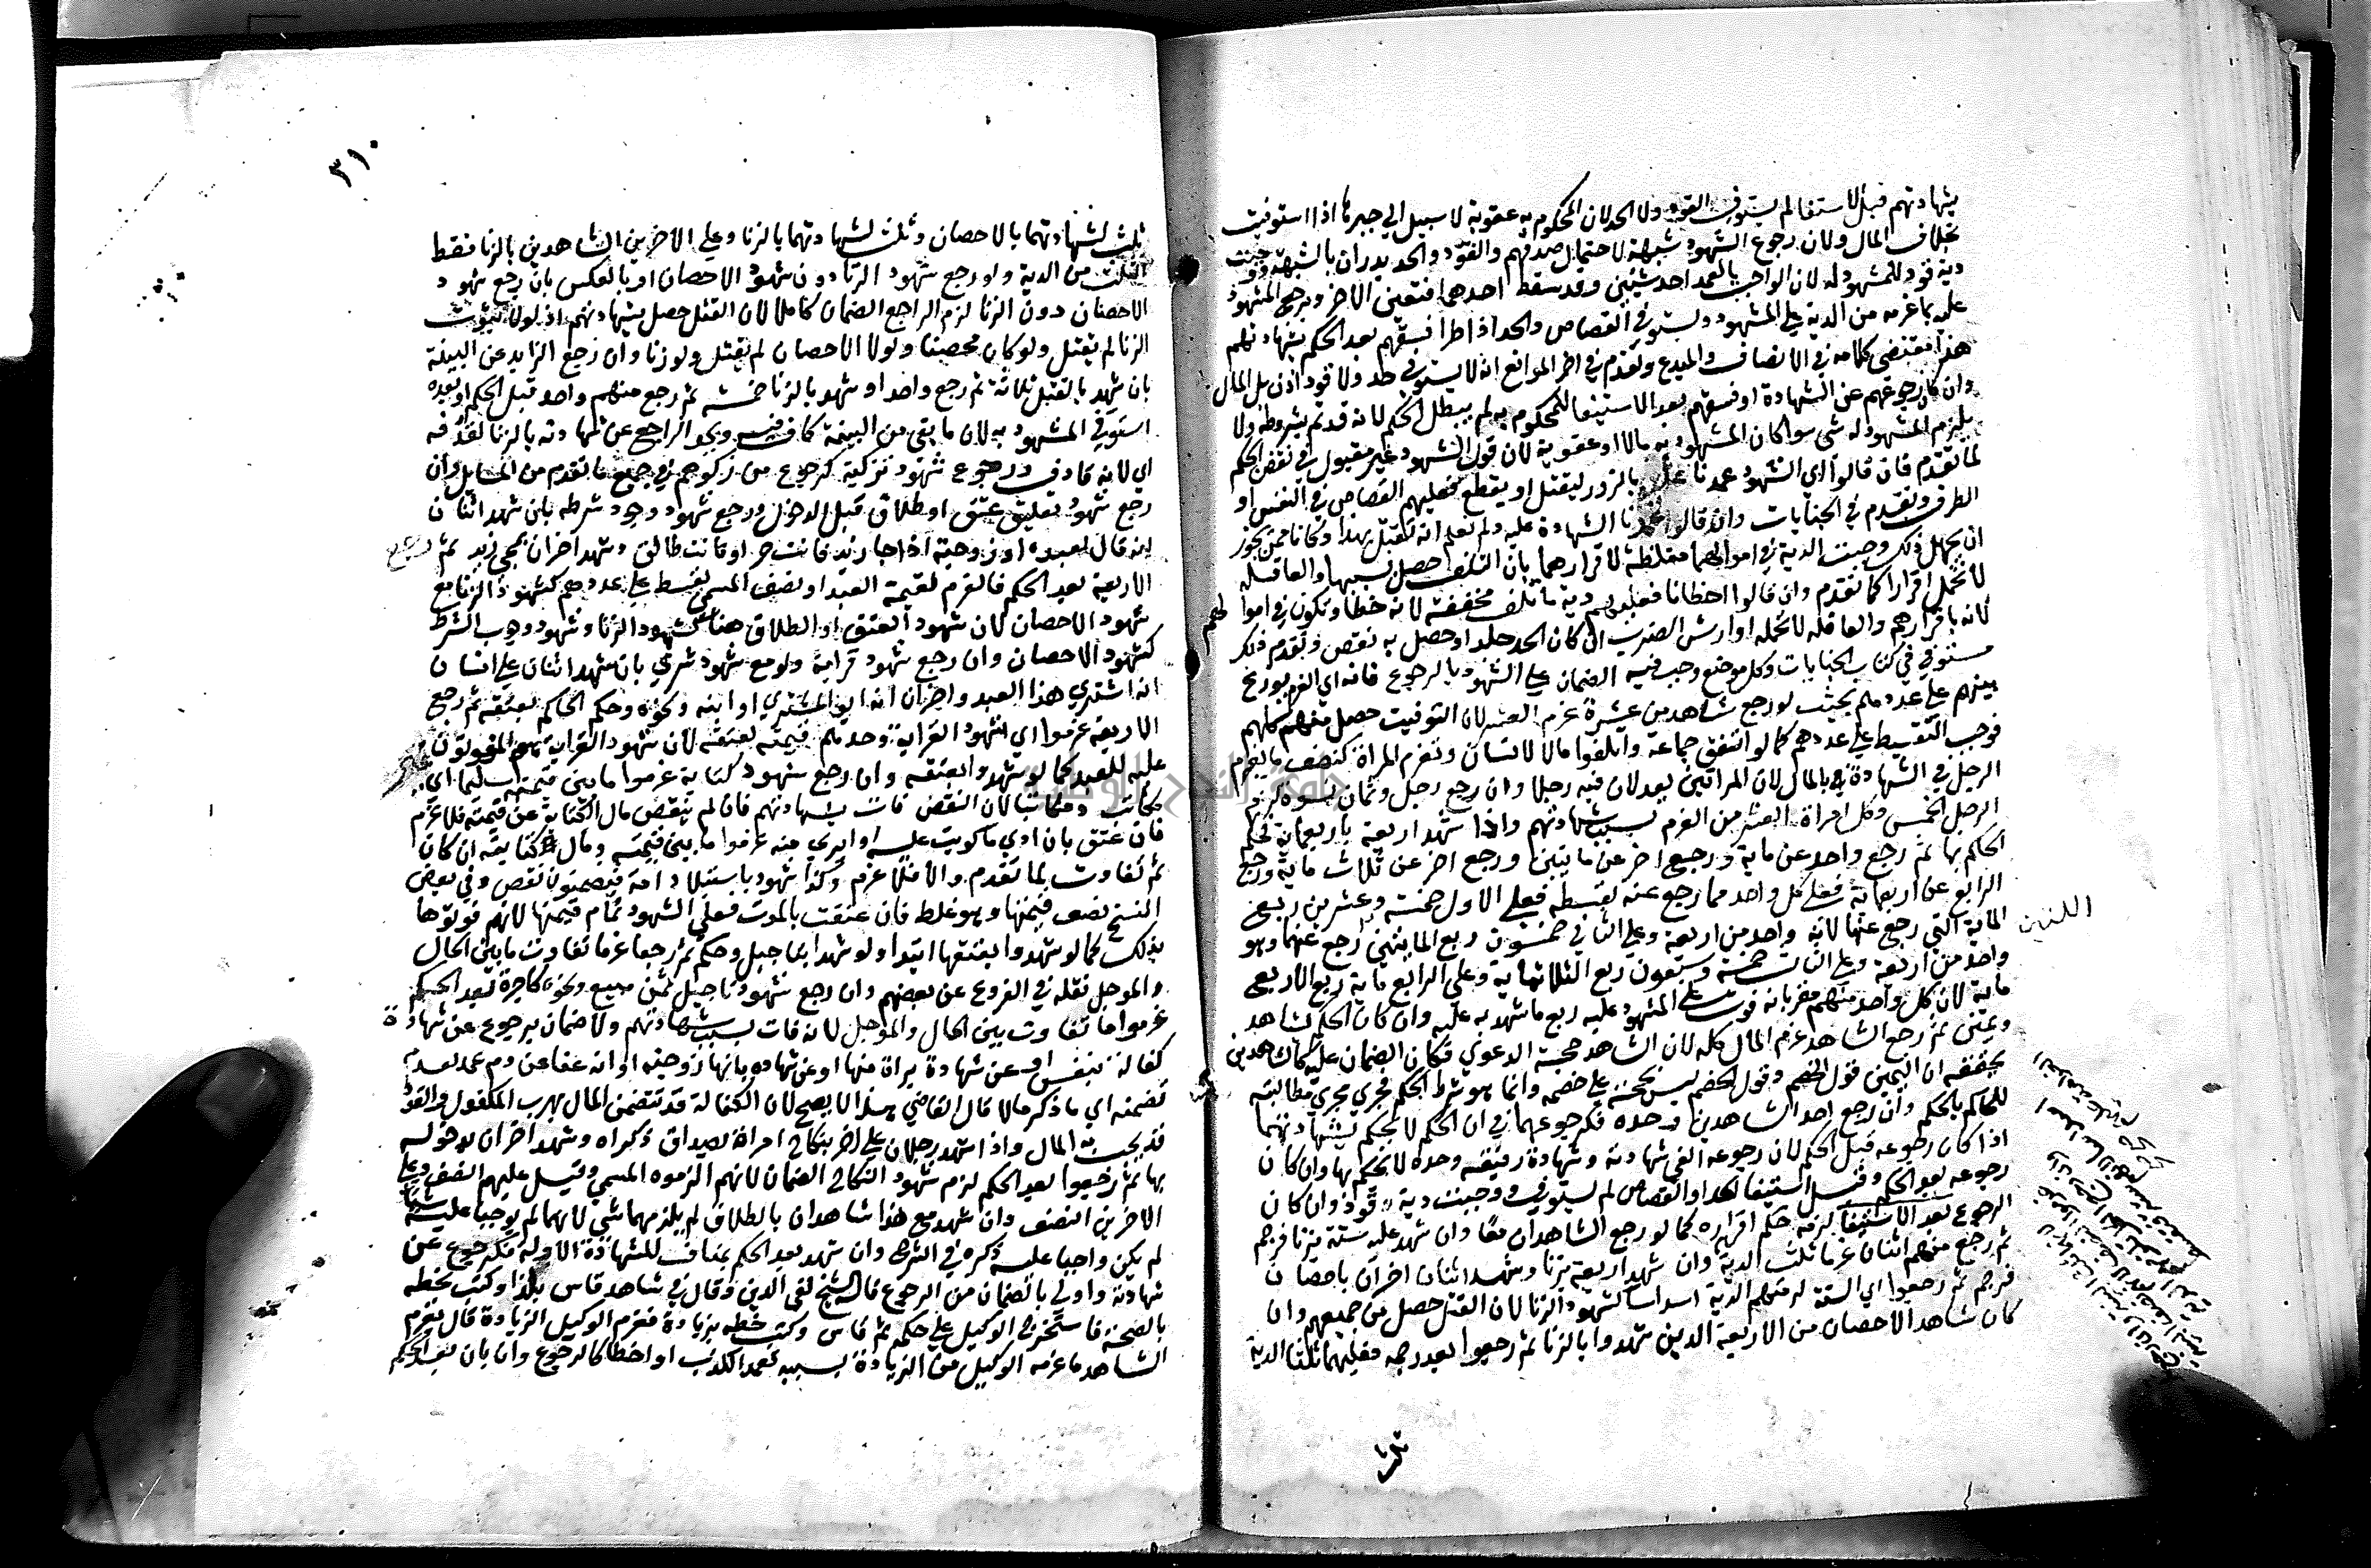 بشهادتهم قبل الاستيفا لم يستوف القود ولا الحد لان المحكوم به عقوبة لا سبيل الى جبرها اذا استوفيت
بخلاف المال ولان رجوع الشهود شبهة لاحتمال صدقهم والقود والحد يدران بالشبهة ووجبت
دية قود للمشهود له لان الواجب بالعمد احد شيئين وقد سقط احدهما فتعين الاخر ويرجع المشهود
عليه بما غرمه من الدية على المشهود ويستوفى القصاص والحد اذا طرا فسقهم بعد الحكم بشهادتهم
هذا مقتضى كلامه في الانصاف والمبدع وتقدم في اخر الموانع انه لا يستوفى حد ولا قود اذن بل المال
وان كان رجوعهم عن الشهادة او فسقهم بعد الاستيفا للمحكوم به لم يبطل الحكم لانه قد تم بشروطه ولا
يلزم المشهود له شي سوا كان المشهود به مالا او عقوبة لان قول الشهود غير مقبول في نقض الحكم
لما تقدم فان قالوا اي الشهود عمدنا عليه بالزور ليقتل او يقطع فعليهم القصاص في النفس او
الطرف وتقدم في الجنايات وان قالوا عمدنا الشهادة عليه ولم نعلم انه يقتل بهذا وكانا ممن يجوز
ان يجهل ذلك وجبت الدية في اموالهما مغلظة لاقرارهما بان التلف حصل بسببهما والعاقلة
لا تحمل اقرارا كما تقدم وان قالوا اخطانا فعليهم دية ما تلف مخففة لانه خطا وتكون في اموالهم
لانه باقرارهم والعاقلة لا تحمله او ارش الضرب ان كان الحد جلدا وحصل به نقص وتقدم ذلك
مستوفى في كتاب الجنايات وكل موضع وجب فيه الضمان على الشهود بالرجوع فانه اي الغرم يوزع
بينهم على عددهم بحيث لو رجع شاهد من عشرة غرم العشر لان التفويت حصل منهم كلهم
فوجب التقسيط على عددهم كما لو اتفق جماعة واتلفوا مالا لانسان وتغرم المراة كنصف ما يغرم
الرجل في الشهادة بالمال لان المراتين يعدلان فيه رجلا وان رجع رجل وثمان نسوة لزم
الرجل الخمس وكل امراة العشر من الغرم بسبب شهادتهم واذا شهد اربعة باربعماية فحكم
الحاكم بها ثم رجع واحد عن ماية ورجع اخر عن مايتين ورجع اخر عن ثلاث ماية ورجع
الرابع عن اربعماية فعلى كل واحد مما رجع عنه بقسطه فعلى الاول خمسة وعشرين ربع
الماية التي رجع عنها لانه واحد من اربعة وعلى الثاني خمسون ربع المايتين رجع عنهما وهو
اللتين
واحد من اربعة وعلى الثالث خمسة وسبعون ربع الثلاثماية وعلى الرابع ماية ربع الاربع
ماية لان كل واحد منهم مقر بانه فوت على المشهود عليه ربع ما شهد به عليه وان كان الحكم بشاهد
ويمين ثم رجع الشاهد غرم المال كله لان الشاهد حجة الدعوى فكان الضمان عليه كالشاهدين
يحققه ان اليمين قول الخصم وقول الخصم ليس بحجة على خصمه وانما هو شرط الحكم فجرى مجرى مطالبته
للحاكم بالحكم وان رجع احد الشاهدين وحده فكرجوعهما في ان الحكم لا يحكم بشهادتهما
اذا كان رجوعه قبل الحكم لان رجوعه الغى شهادته وشهادة رفيقه وحده لا يحكم بها وان كان
رجوعه بعد الحكم وقبل استيفا لحد او القصاص لم يستوف ووجبت دية قود وان كان
الرجوع بعد الاستيفا لزمه حكم اقراره كما لو رجع الشاهدان معا وان شهد عليه ستة بزنا فرجم
ثم رجع منهم اثنان غرما ثلث الدية وان شهد اربعة بزنا وشهد اثنان اخران باحصان
فرجم ثم رجعوا اي الستة لزمتهم الدية اسداسا لشهود الزنا لان القتل حصل من جميعهم وان
كان شاهد الاحصان من الاربعة الذين شهدوا بالزنا ثم رجعوا بعد رجمه فعليهما ثلثا الدية
ثلث
٣١٠
ثلث لشهادتهما بالاحصان وثلث لشهادتهما بالزنا وعلى الاخرين الشاهدين بالزنا فقط
الثلث من الدية ولو رجع شهود الزنا دون شهود الاحصان او بالعكس بان رجع شهود
الاحصان دون الزنا لزم الراجع الضمان كاملا لان القتل حصل بشهادتهم اذ لولا ثبوت
الزنا لم يقتل ولو كان محصنا ولولا الاحصان لم يقتل ولو زنا وان رجع الزايد عن البينة
بان شهد بالقتل ثلاثة ثم رجع واحد او شهد بالزنا خمسة ثم رجع منهم واحد قبل الحكم او بعده
استوفي المشهود به لان ما بقي من البينة كاف فيه ويحد الراجع عن شهادته بالزنا لقذفه
اي لانه قاذف ورجوع شهود تزكية كرجوع من زكوهم في جميع ما تقدم من المسايل وان
رجع شهود تعليق عتق او طلاق قبل الدخول ورجع شهود وجود شرطه بان شهد اثنان
انه قال لعبده او زوجته اذا جا زيد فانت حر او فانت طالق وشهد اخران بمجي زيد ثم رجع
الاربعة بعد الحكم فالغرم لقيمة العبد او نصف المسمى يقسط على عددهم كشهود الزنا مع
شهود الاحصان لان شهود العتق او الطلاق هنا كشهود الزنا وشهود وجوب الشرط
كشهود الاحصان وان رجع شهود قرابة ولو مع شهود شري بان شهد اثنان على انسان
انه اشترى هذا العبد واخران انه ابو المشتري او ابنه ونحوه وحكم الحاكم بعتقه ثم رجع
الاربعة غرموا اي شهود القرابة وحدهم قيمته لعتقه لان شهود القرابة هم المفوتون
عليه للعبد كما لو شهدوا بعتقه وان رجع شهود كتابة غرموا ما بين قيمته سليما اي
ومكاتبا لان النقض فات بشهادتهم فان لم ينقص مال الكتابة عن قيمته فلا غرم
فان عتق بان ادى ما كوتب عليه او ابري منه غرموا ما بين قيمته ومال كتابته ان كان
ثم تفاوت لما تقدم والا فلا غرم وكذا شهود باستيلاد امة فيضمنون نقص وفي بعض
النسخ نصف قيمتها وهو غلط فان عتقت بالموت فعلى الشهود تمام قيمتها لانهم فوتوها
بذلك كما لو شهدوا بعتقها ابتدا ولو شهدا بتاجيل وحكم ثم رجعا غرما تفاوت ما بين الحال
والموجل نقله في الفروع عن بعضهم وان رجع شهود تاجيل ثمن مبيع ونحوه كاجرة بعد الحكم
غرموا ما تفاوت بين الحال والموجل لانه فات بسبب شهادتهم ولا ضمان برجوع عن شهادة
كفالة بنفس او عن شهادة براة منها او عن شهادة بانها زوجته او انه عفا عن دم عمد لعدم
تضمنه اي ما ذكر مالا قال القاضي هذا لا يصح لان الكفالة قد تتضمن المال بهرب المكفول والقود
قد يجب به المال واذا شهد رجلان على اخر بنكاح امراة بصداق ذكراه وشهد اخران بدخوله
بها ثم رجعوا بعد الحكم لزم شهود النكاح الضمان لانهم الزموه المسمى وقيل عليهم النصف وعلى
الاخرين النصف وان شهد مع هذا شاهدان بالطلاق لم يلزمهما شي لانهما لم يوجبا عليه شيا
لم يكن واجبا عليه ذكره في الشرح وان شهد بعد الحكم بمناف للشهادة الاولة فكرجوع عن
شهادته واولى بالضمان من الرجوع قال الشيخ تقي الدين وقال في شاهد قاس بلدا وكتب بخطه
بالصحة فاستخرج الوكيل على حكمه ثم قاس وكتب خطه بزيادة فغرم الوكيل الزيادة قال يغرم
الشاهد ما غرمه الوكيل من الزيادة بسببه تعمد الكذب او اخطا كالرجوع وان بان بعد الحكم